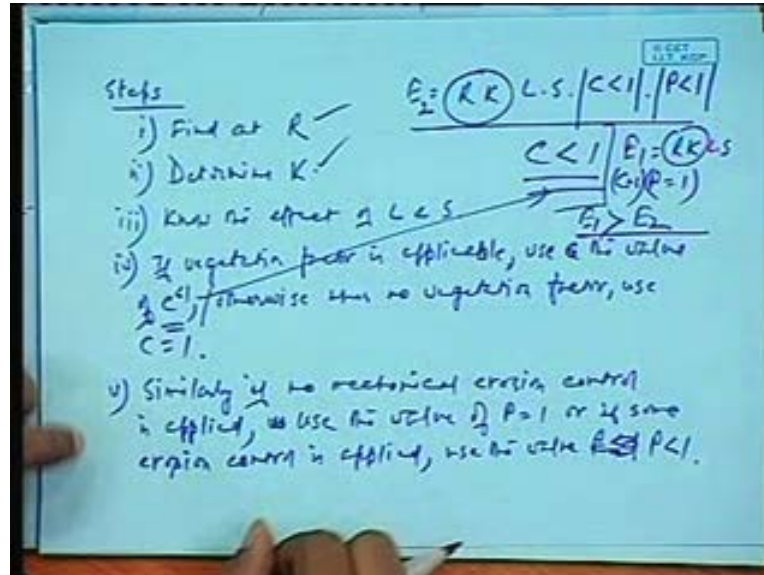 Steps
i) Find out R
ii) Determine K
iii) Know the effect of L & S
iv) If vegetation factor is applicable, use the value
of C<1, otherwise when no vegetation factor, use
C = 1.
v) Similarly if no mechanical erosion control
is applied, use the value of P=1 or if some
erosion control is applied, use the value P<1.
E2 = RK L.S. |C<1|.|P<1|
C < 1
E1 = RK LS
(C=1)(P=1)
E1 > E2